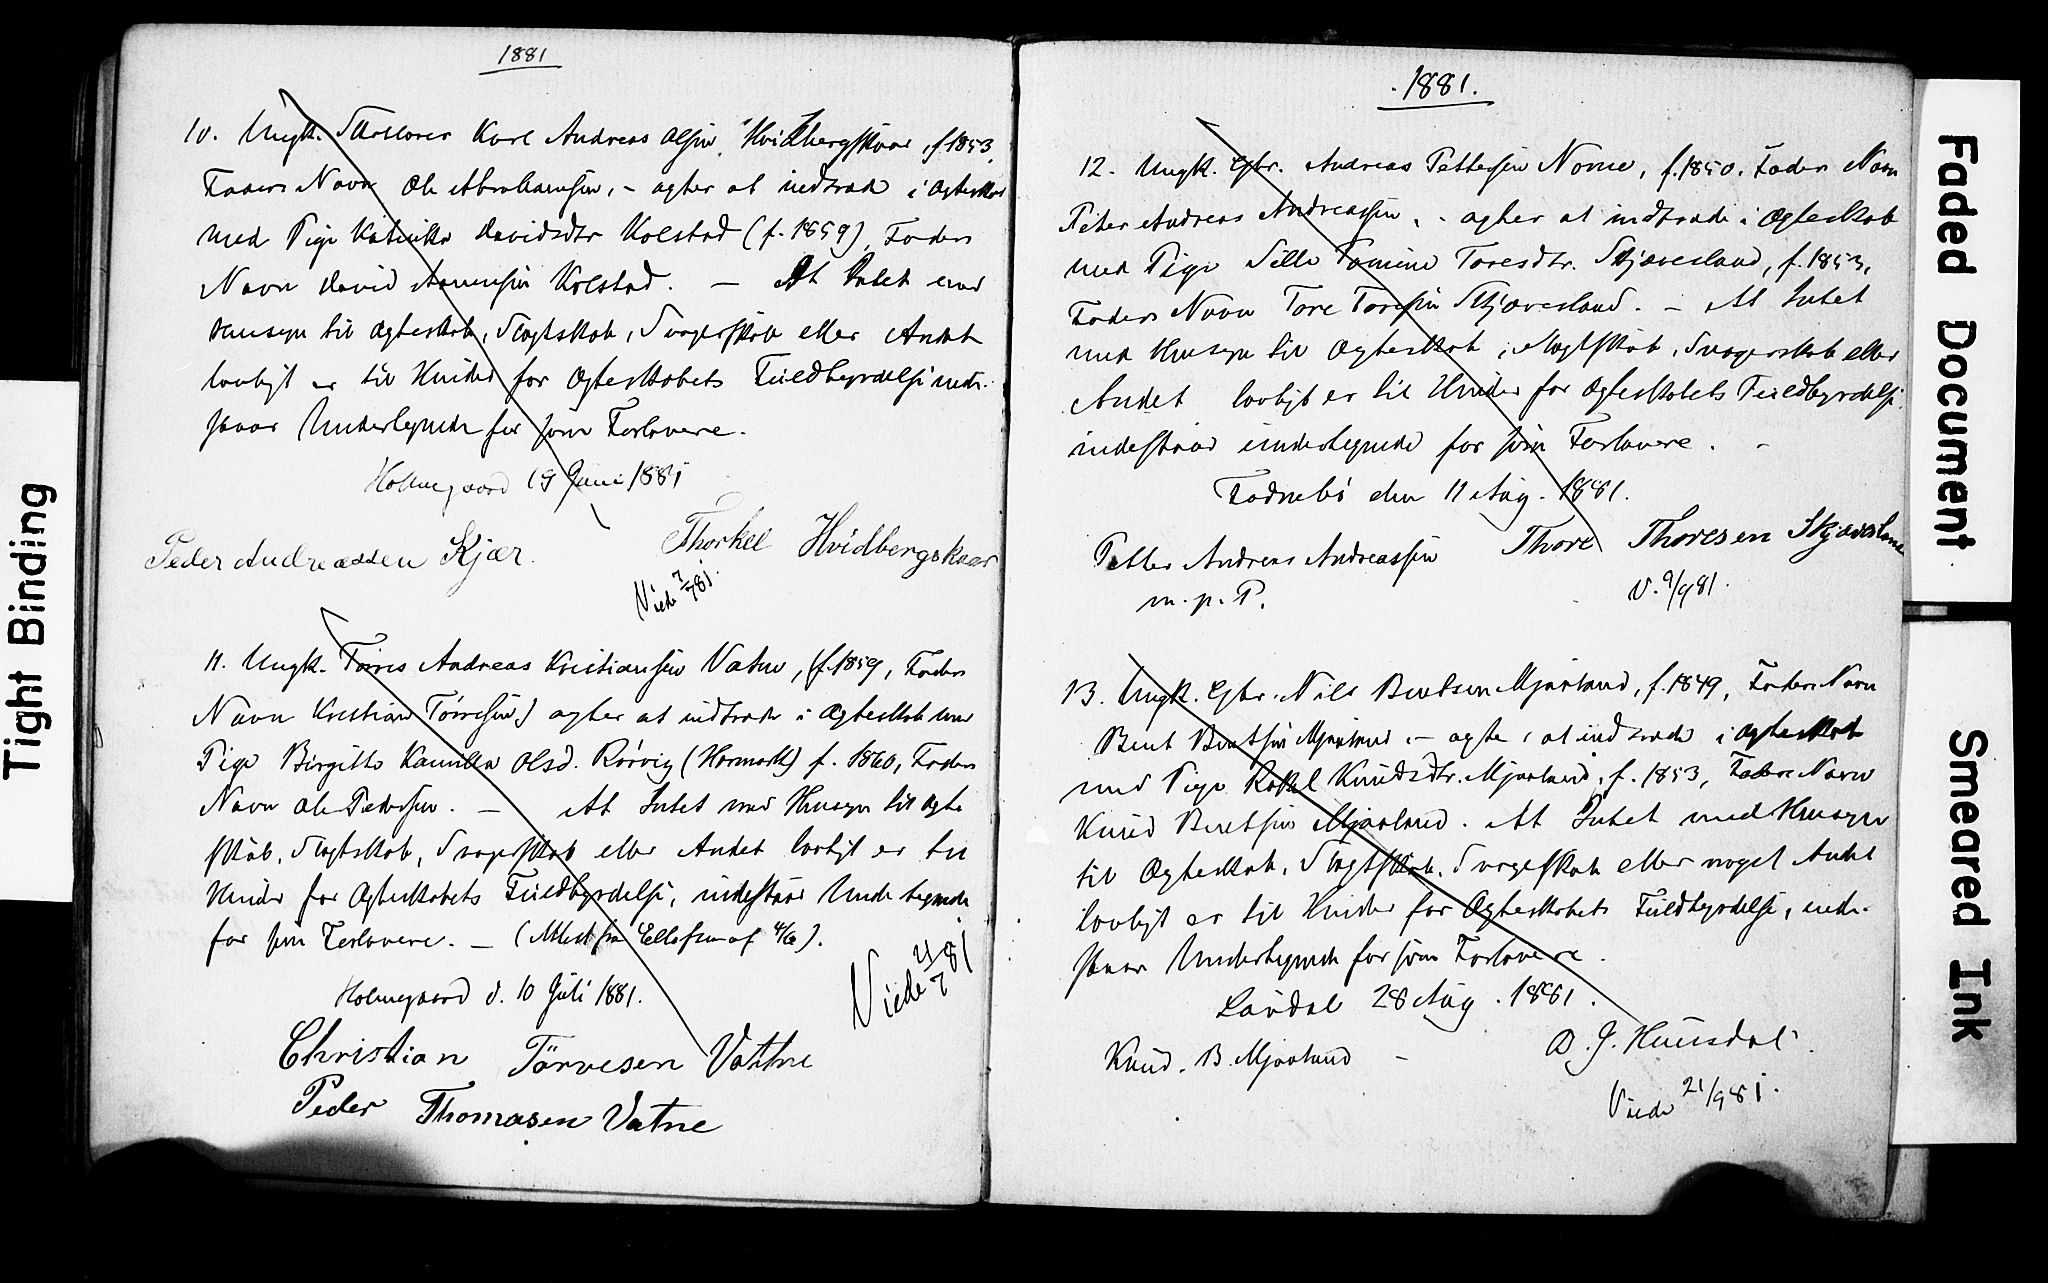 Tight Binding
1881
10. Ungk. Karl Andreas Olsen Hvidbergskaar, f. 1853,
Faders Navn Ole Abrahamsen, - agter at indtræde i Ægteskab
med Pige Katrika Davidsdtr Kolstad (f. 1859), Faders
Navn David Kolstad. - At Intet med
Hensyn til Ægteskab, Slægtskab, Svogerskab eller Andet
lovligt er til Hinder for Ægteskabets Fuldbyrdelse inde-
staar Undertegnede for som Forlovere.
Holmegaard 19 Juni 1881
Peder Andreassen Kjær. Thorkel Hvidbergskaar
Viede 7/7 81.
11. Ungk. Tørres Andreas Kristiansen Vatne, (f. 1859, Faders
Navn Kristian Tørresen) agter at indtræde i Ægteskab med
Pige Birgitte Kamilla Olsd. Rørvig (Harmark) f. 1860, Faders
Navn Ole Pedersen. - At Intet med Hensyn til Ægte
skab, Slægtskab, Svogerskab eller Andet lovligt er til
Hinder for Ægteskabets Fuldbyrdelse, indestaar Undertegnede
for som Forlovere. - (Attest fra Ellefsen af 4/6).
Holmegaard d. 10 Juli 1881.
Viede 21/7 81
Christian Törresen Vattne
Peder Thomasen Vatne
1881.
12. Ungk. Gbr. Andreas Pettersen Nome, f. 1850. Faders Navn
Peter Andreas Andreassen, - agter at indtræde i Ægteskab
med Pige Sille Tomine Toresdtr. Skjævesland, f. 1853,
Faders Navn Tore Toresen Skjævesland. - At Intet
med Hensyn til Ægteskab, Slægtskab, Svogerskab eller
Andet lovligt er til Hinder for Ægteskabets Fuldbyrdelse
indestaar undertegnede for som Forlovere. -
Fadnebö den 11 Aug. 1881.
Petter Andreas Andreassen Thore Thoresen Skjævesland
m. p. P.
V. 9/9 81.
13. Ungk. Gbr. Nils Bentsen Mjaaland, f. 1849, Faders Navn
Bent Bentsen Mjaaland. - agter at indtræde i Ægteskab
med Pige Rakel Knudsdtr. Mjaaland, f. 1853, Faders Navn
Knud Bentsen Mjaaland. At Intet med Hensyn
til Ægteskab, Slægtskab, Svogerskab eller noget Andet
lovligt er til Hinder for Ægteskabets Fuldbyrdelse, inde-
staar Undertegnede for som Forlovere.
Laudal 28 Aug. 1881.
Knud. B. Mjaaland - O. J. Huusdal.
Viede 21/9 81.
Faded Document
Smeared Ink